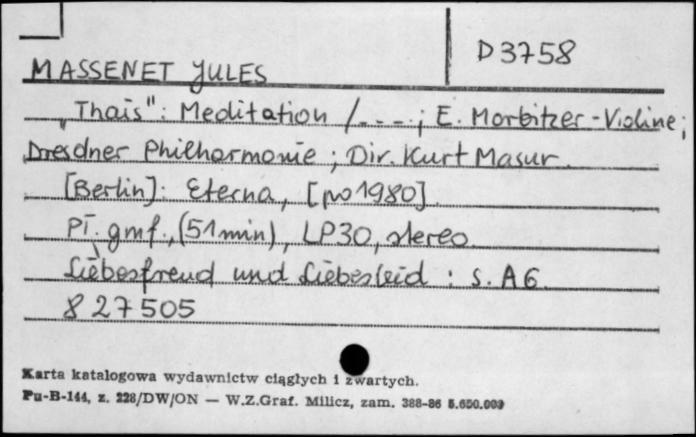 D3758
MASSENET JULES
„Thais": Meditation /_ _ _.; E. Morbitzer-Violine;
Dresdner Philharmonie; Dir. Kurt Masur.
[Berlin]: Eterna, [po 1980].
Pł. gmf., (51 min), LP30, stereo
Liebesfreud und Liebesleid : s. A6
8 27 505
Karta katalogowa wydawnictw ciągłych i zwartych.
Pu-B-144, z. 228/DW/ON — W.Z.Graf. Milicz, zam. 388-86 5.600.000